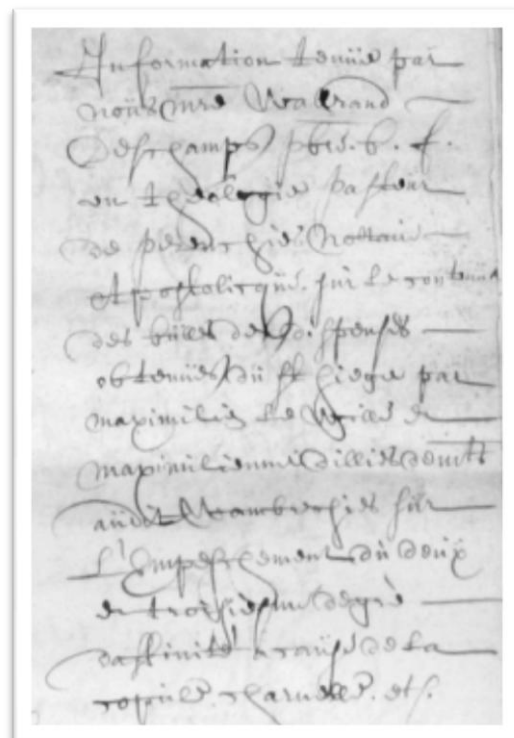 Information tenüe par
noüs mre Wallrand
Deschamps pbre. b. f.
en theologie pasteur
de perenchies Nottaire
Apostolicque, sur le contenu
des bulles de dispenses
obtenües dü st siege par
maximilien le
maximilienne dillies demts
audit Wambrechies sur
L'Empeschement dü deux
et troisiesme degré
daffinité a cause de la
copule charnelle. etc.